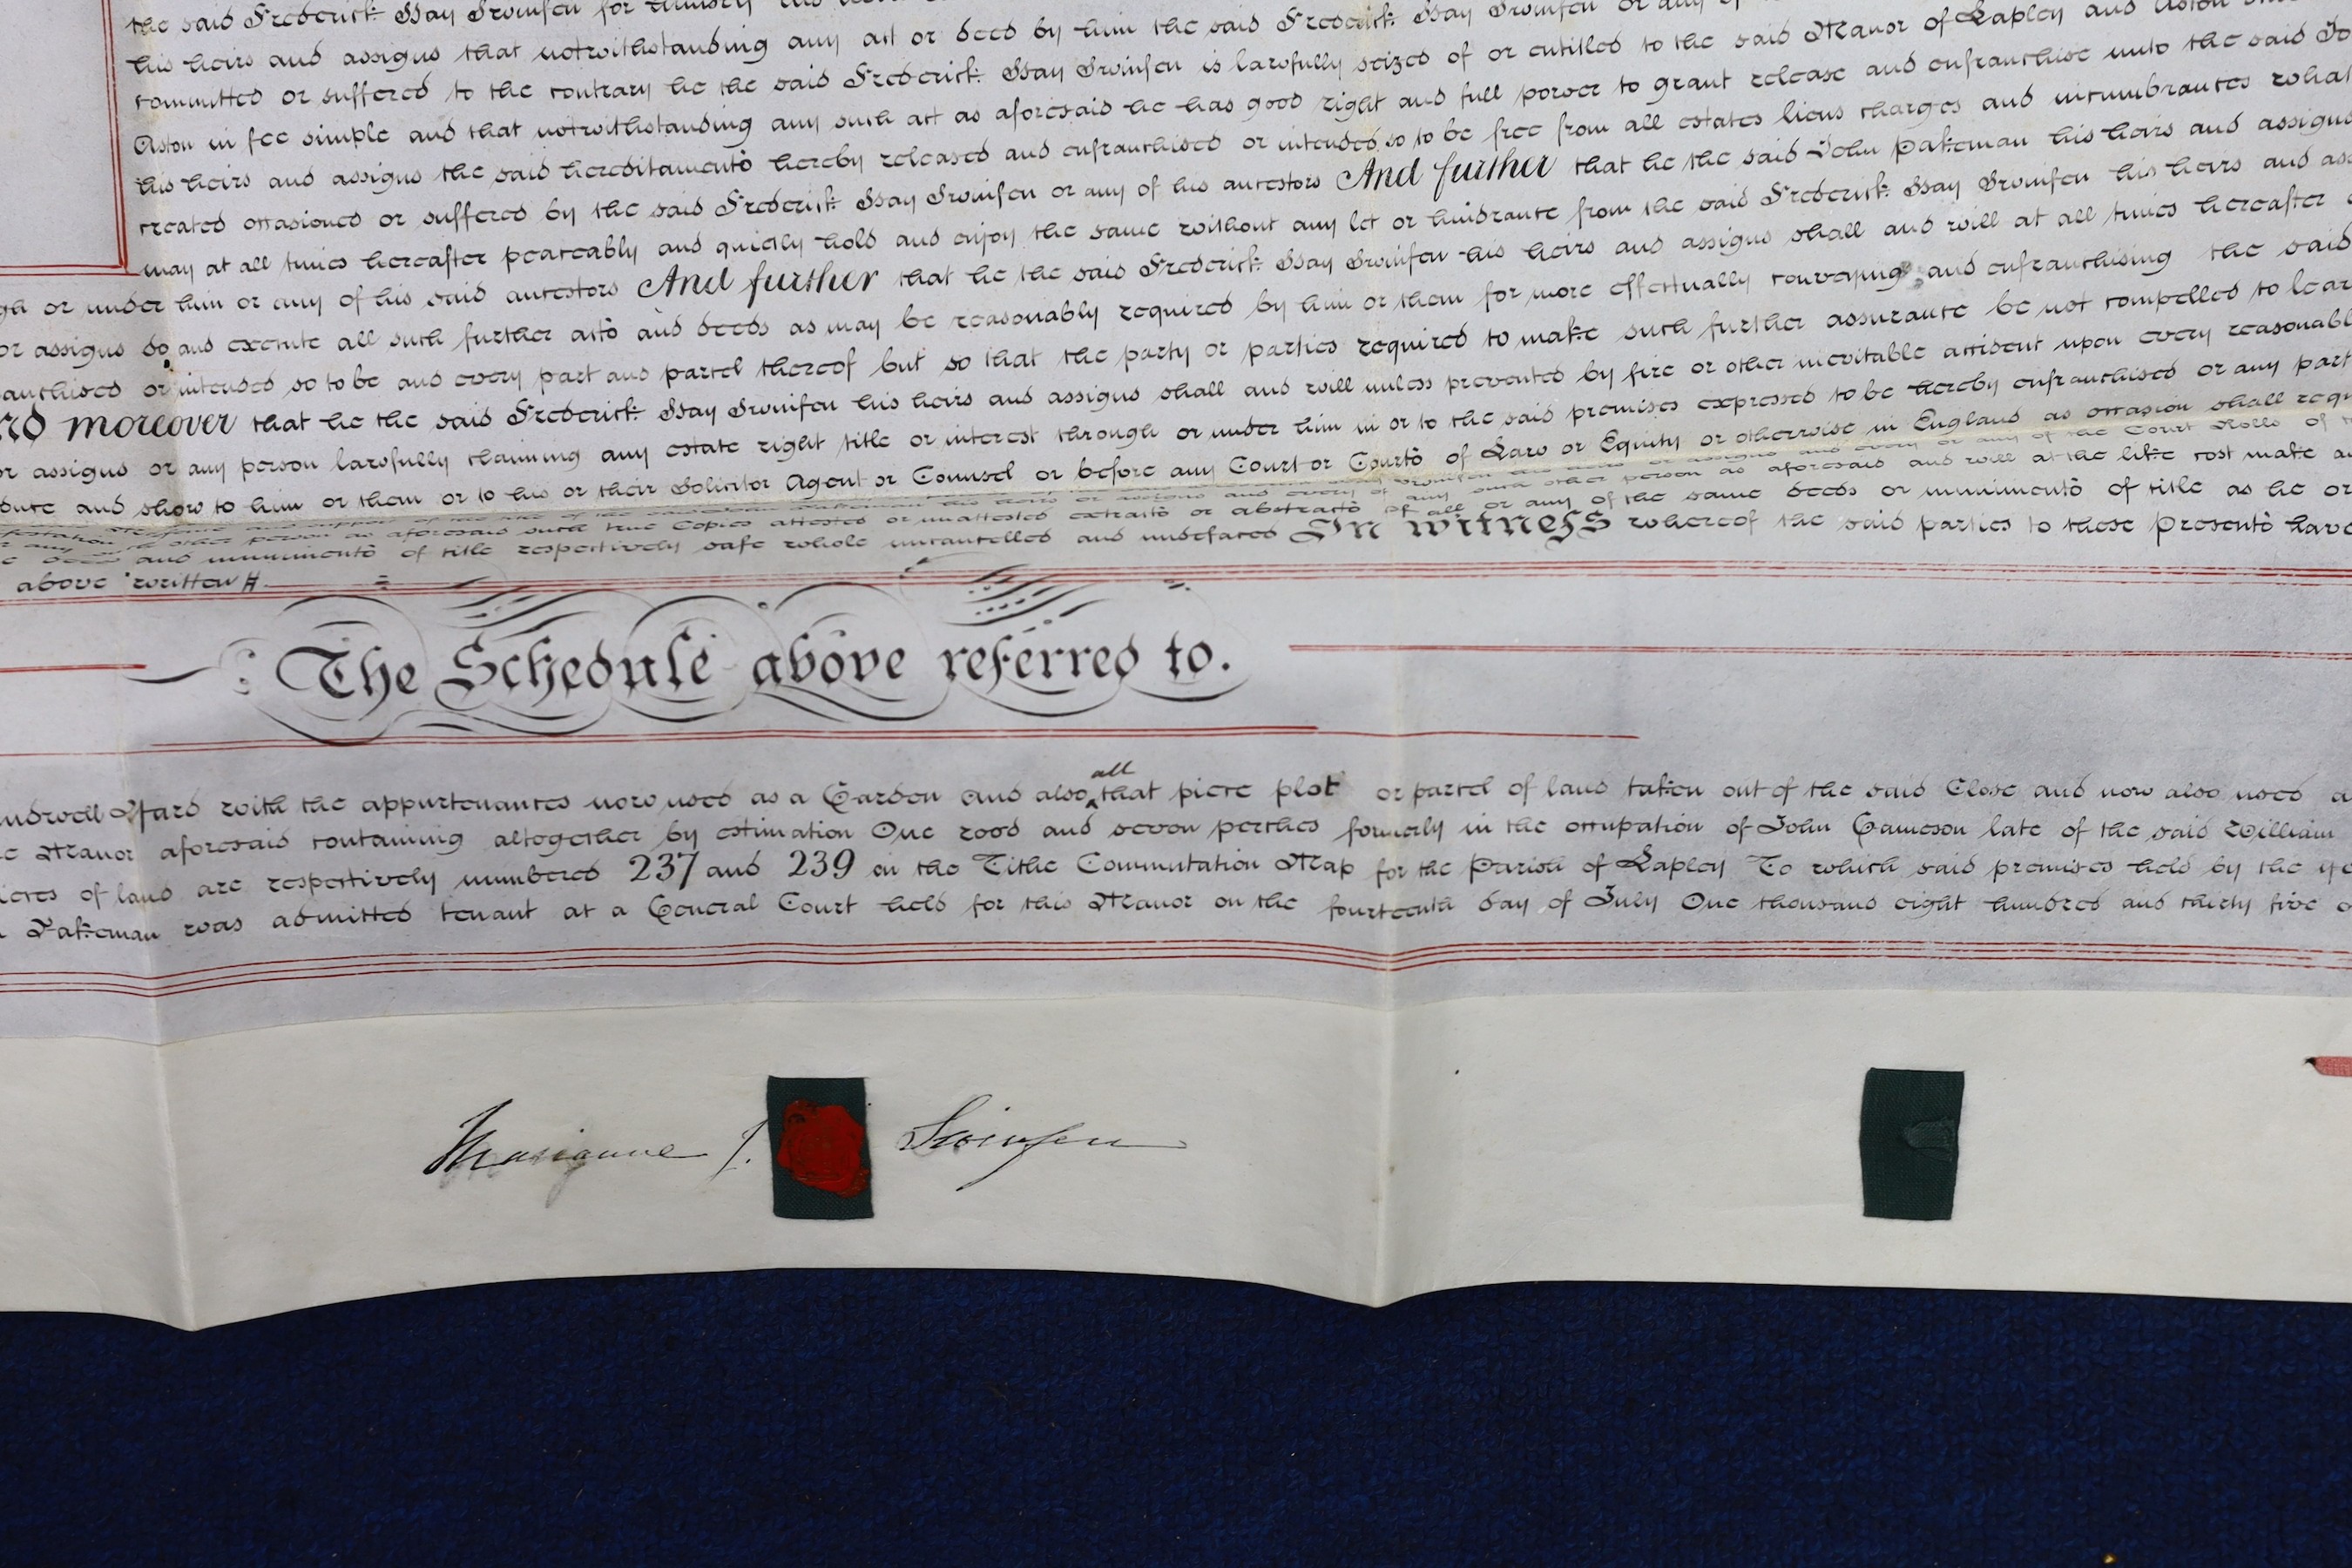 the said Frederick Hay Swinfen for himself his
his heirs and assigns that notwithstanding any act or deed by him the said Frederick Hay Swinfen or any of
committed or suffered to the contrary he the said Frederick Hay Swinfen is lawfully seized of or entitled to the said Manor of Lapley and Aston
Aston in fee simple and that notwithstanding any such act as aforesaid he has good right and full power to grant release and enfranchise unto the said Jo
his heirs and assigns the said hereditaments hereby released and enfranchised or intended so to be free from all estates liens charges and incumbrances what
created occasioned or suffered by the said Frederick Hay Swinfen or any of his ancestors And further that he the said John Pakeman his heirs and assigns
may at all times hereafter peaceably and quietly hold and enjoy the same without any let or hindrance from the said Frederick Hay Swinfen his heirs and as
gh or under him or any of his said ancestors And further that he the said Frederick Hay Swinfen his heirs and assigns shall and will at all times hereafter
or assigns do and execute all such further acts and deeds as may be reasonably required by him or them for more effectually conveying and enfranchising the said
anchised or intended so to be and every part and parcel thereof but so that the party or parties required to make such further assurance be not compelled to lear
nd moreover that he the said Frederick Hay Swinfen his heirs and assigns shall and will unless prevented by fire or other inevitable accident upon every reasonabl
or assigns or any person lawfully claiming any estate right title or interest through or under him in or to the said premises expressed to be hereby enfranchised or any part
duce and show to him or them or to his or their Solicitor Agent or Counsel or before any Court or Courts of Law or Equity or otherwise in England as occasion shall requ
any of the Court Rolls of
person as aforesaid such true Copies attested or unattested extracts or abstracts of all or any of the same deeds or muniments of title as he or
and muniments of title respectively safe whole uncancelled and undefaced In Witness whereof the said parties to these Presents have
above written
The Schedule above referred to.
Yard with the appurtenances now used as a Garden and also all that piece plot or parcel of land taken out of the said Close and now also used a
Manor aforesaid containing altogether by estimation One rood and seven perches formerly in the occupation of John Gameson late of the said William
ieces of land are respectively numbered 237 and 239 on the Tithe Commutation Map for the Parish of Lapley To which said premises held by the
Pakeman was admitted tenant at a General Court held for this Manor on the fourteenth day of July One thousand eight hundred and thirty five
Marianne J. Swinfen